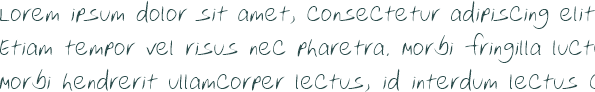 Lorem ipsum dolor sit amet, consectetur adipiscing elit
Etiam tempor vel risus nec pharetra. Morbi fringilla luct
Morbi hendrerit ullamcorper lectus, id interdum lectus